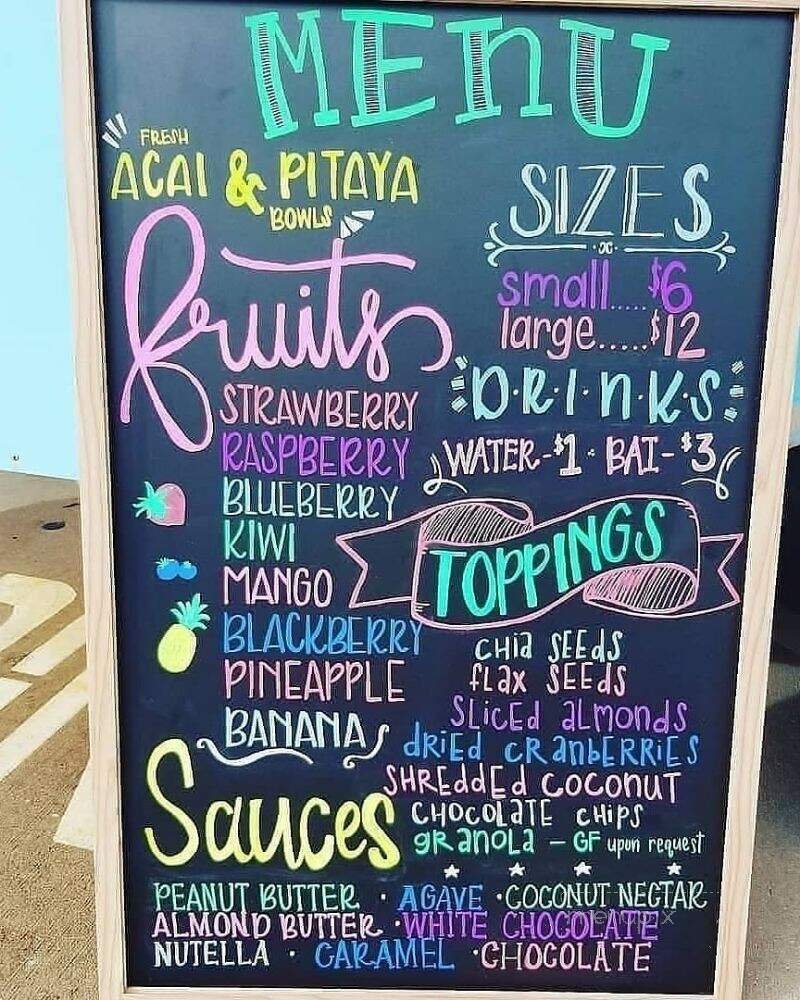 MENU
FRESH
ACAI & PITAYA
BOWLS
fruits
STRAWBERRY
RASPBERRY
BLUEBERRY
KIWI
MANGO
BLACKBERRY
PINEAPPLE
BANANA
SIZES
small.....$6
large.....$12
D·R·I·N·K·S
WATER-$1 · BAI-$3
TOPPINGS
CHIA SEEdS
FLAX SEEdS
SLICEd ALMONdS
dRIEd CRANbERRIES
SHREddEd COCONUT
CHOCOLATE CHIPS
GRANOLA - GF upon request
Sauces
PEANUT BUTTER · AGAVE · COCONUT NECTAR
ALMOND BUTTER · WHITE CHOCOLATE
NUTELLA · CARAMEL · CHOCOLATE